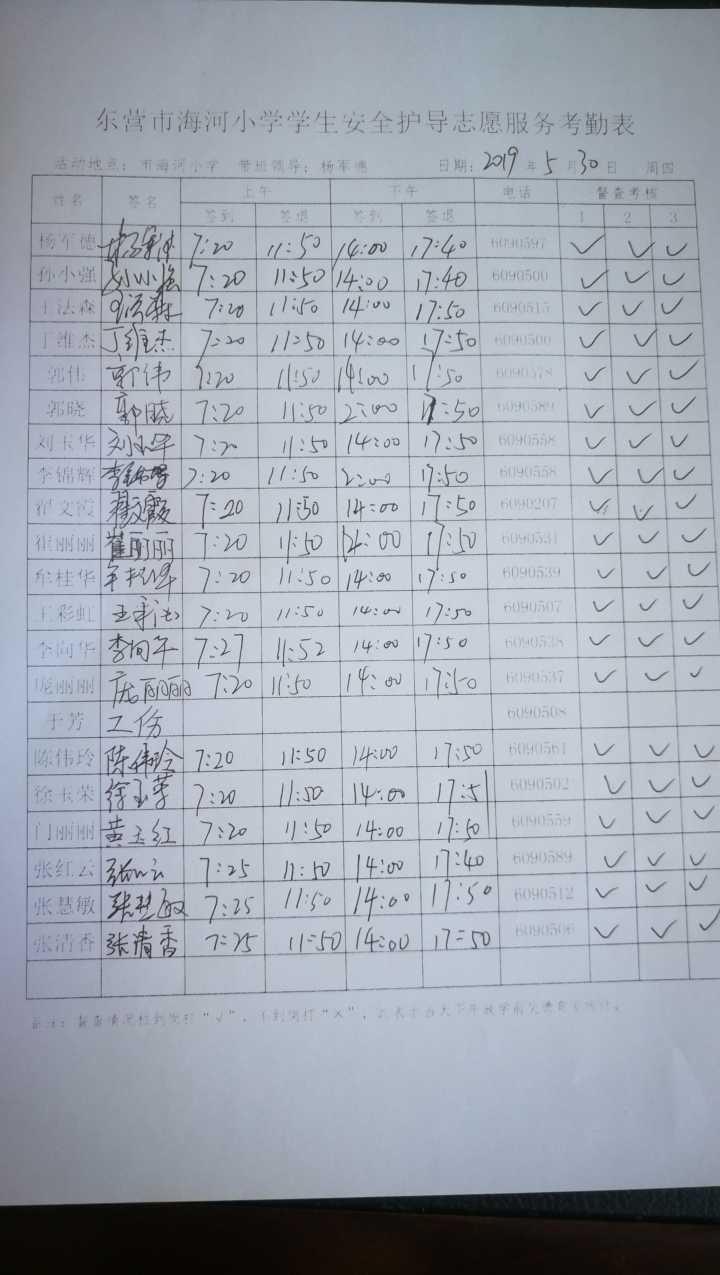 东营市海河小学学生安全护导志愿服务考勤表
活动地点：市海河小学 带班领导：杨军德 日期：2019年5月30日 周四
姓名 签名 上午 下午 电话 督查考核
签到 签退 签到 签退 1 2 3
杨军德 杨军德 7:20 11:50 14:00 17:40 6090597 ✓ ✓ ✓
孙小强 孙小强 7:20 11:50 14:00 17:40 6090500 ✓ ✓ ✓
王法森 王法森 7:20 11:50 14:00 17:50 6090515 ✓ ✓ ✓
丁维杰 丁维杰 7:20 11:50 14:00 17:50 6090500 ✓ ✓ ✓
郭伟 郭伟 7:20 11:50 14:00 17:50 6090578 ✓ ✓ ✓
郭晓 郭晓 7:20 11:50 2:00 17:50 6090589 ✓ ✓ ✓
刘玉华 刘玉华 7:20 11:50 14:00 17:50 6090558 ✓ ✓ ✓
李锦辉 李锦辉 7:20 11:50 2:00 17:50 6090558 ✓ ✓ ✓
翟文霞 翟文霞 7:20 11:50 14:00 17:50 6090207 ✓ ✓ ✓
崔丽丽 崔丽丽 7:20 11:50 14:00 17:50 6090531 ✓ ✓ ✓
牟桂华 牟桂华 7:20 11:50 14:00 17:50 6090539 ✓ ✓ ✓
王彩虹 王彩虹 7:20 11:50 14:00 17:50 6090507 ✓ ✓ ✓
李向华 李向华 7:27 11:52 14:00 17:50 6090538 ✓ ✓ ✓
庞丽丽 庞丽丽 7:20 11:50 14:00 17:50 6090537 ✓ ✓ ✓
于芳 工伤 6090508
陈伟玲 陈伟玲 7:20 11:50 14:00 17:50 6090561 ✓ ✓ ✓
徐玉荣 徐玉荣 7:20 11:50 14:00 17:51 6090502 ✓ ✓ ✓
门丽丽 黄玉红 7:20 11:50 14:00 17:50 6090559 ✓ ✓ ✓
张红云 张红云 7:25 11:50 14:00 17:40 6090589 ✓ ✓ ✓
张慧敏 张慧敏 7:25 11:50 14:00 17:50 6090512 ✓ ✓ ✓
张清香 张清香 7:25 11:50 14:00 17:50 6090506 ✓ ✓ ✓
备注：督查情况检到岗打“√”，不到岗打“×”，